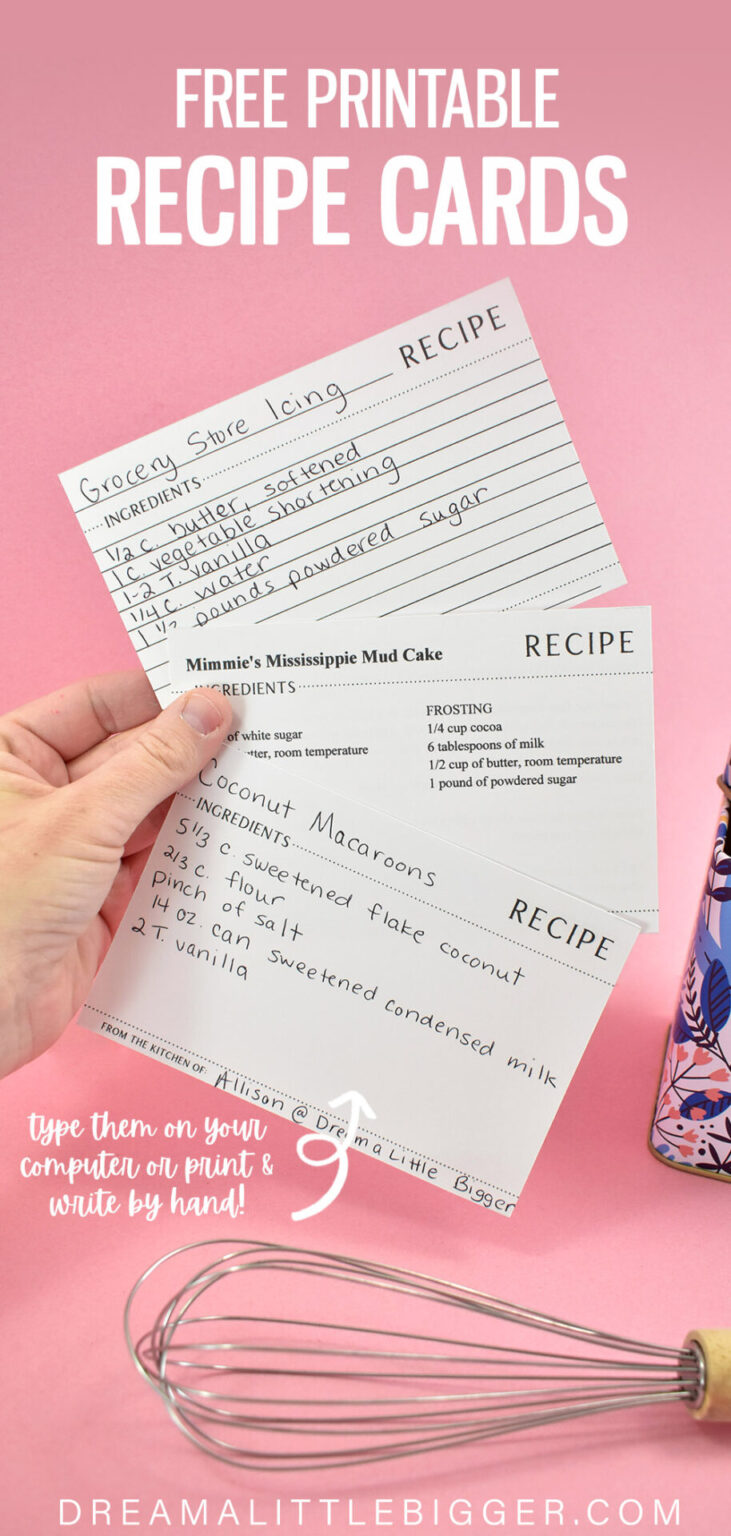 FREE PRINTABLE
RECIPE CARDS
RECIPE
Grocery Store Icing
INGREDIENTS
1/2 c. butter, softened
1 c. vegetable shortening
1-2 T. vanilla
1/4 c. water
1 1/2 pounds powdered sugar
RECIPE
Mimmie's Mississippie Mud Cake
INGREDIENTS
of white sugar
butter, room temperature
FROSTING
1/4 cup cocoa
6 tablespoons of milk
1/2 cup of butter, room temperature
1 pound of powdered sugar
RECIPE
Coconut Macaroons
INGREDIENTS
5 1/3 c. sweetened flake coconut
2/3 c. flour
pinch of salt
14 oz. can sweetened condensed milk
2 T. vanilla
FROM THE KITCHEN OF: Allison @ Dream a Little Bigger
type them on your
computer or print &
write by hand!
DREAMALITTLEBIGGER.COM